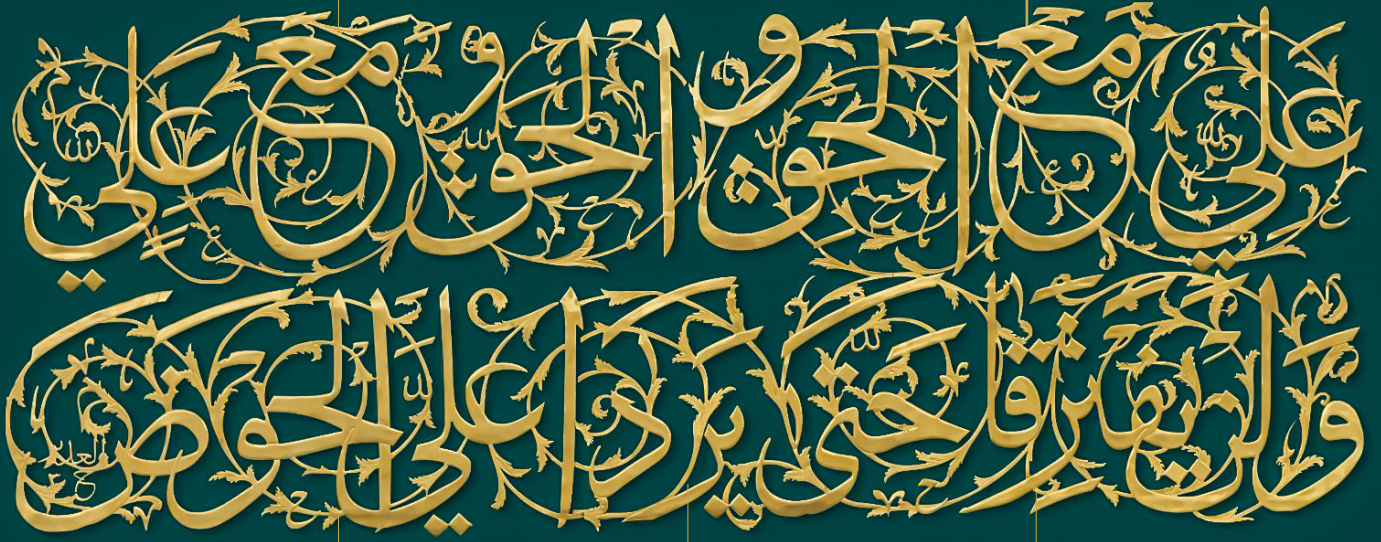 علي مع الحق و الحق مع علي
ولن يفترقا حتى يردا علي الحوض